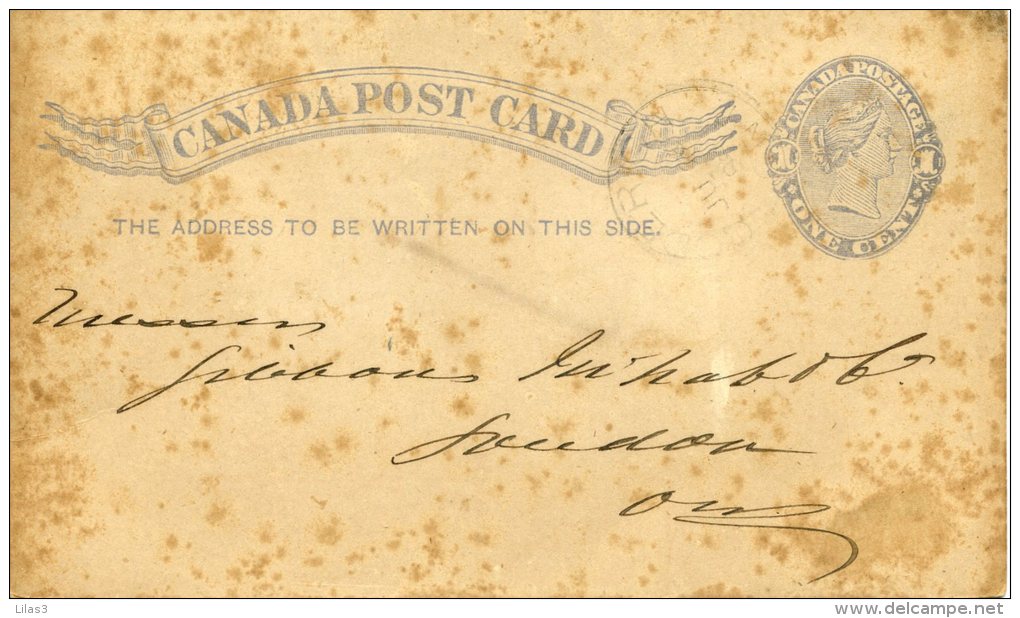 CANADA POST CARD
CANADA POSTAGE
1 1
ONE CENT
THE ADDRESS TO BE WRITTEN ON THIS SIDE.
Messrs
Gibbons McNab & Co.
London
Ont
Lilas3
www.delcampe.net